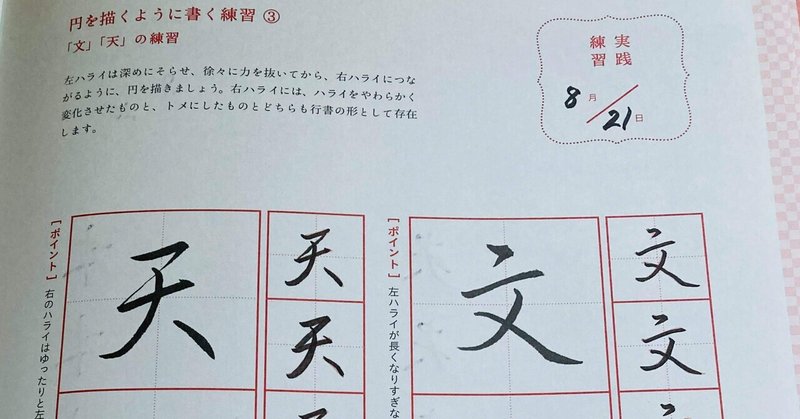 円を描くように書く練習 ③
「文」「天」の練習
左ハライは深めにそらせ、徐々に力を抜いてから、右ハライにつな
がるように、円を描きましょう。右ハライには、ハライをやわらかく
変化させたものと、トメにしたものとどちらも行書の形として存在
します。
実践
練習
8月
21日
文
文
文
[ポイント] 左ハライが長くなりすぎな
天
天
天
[ポイント] 右のハライはゆったりと左